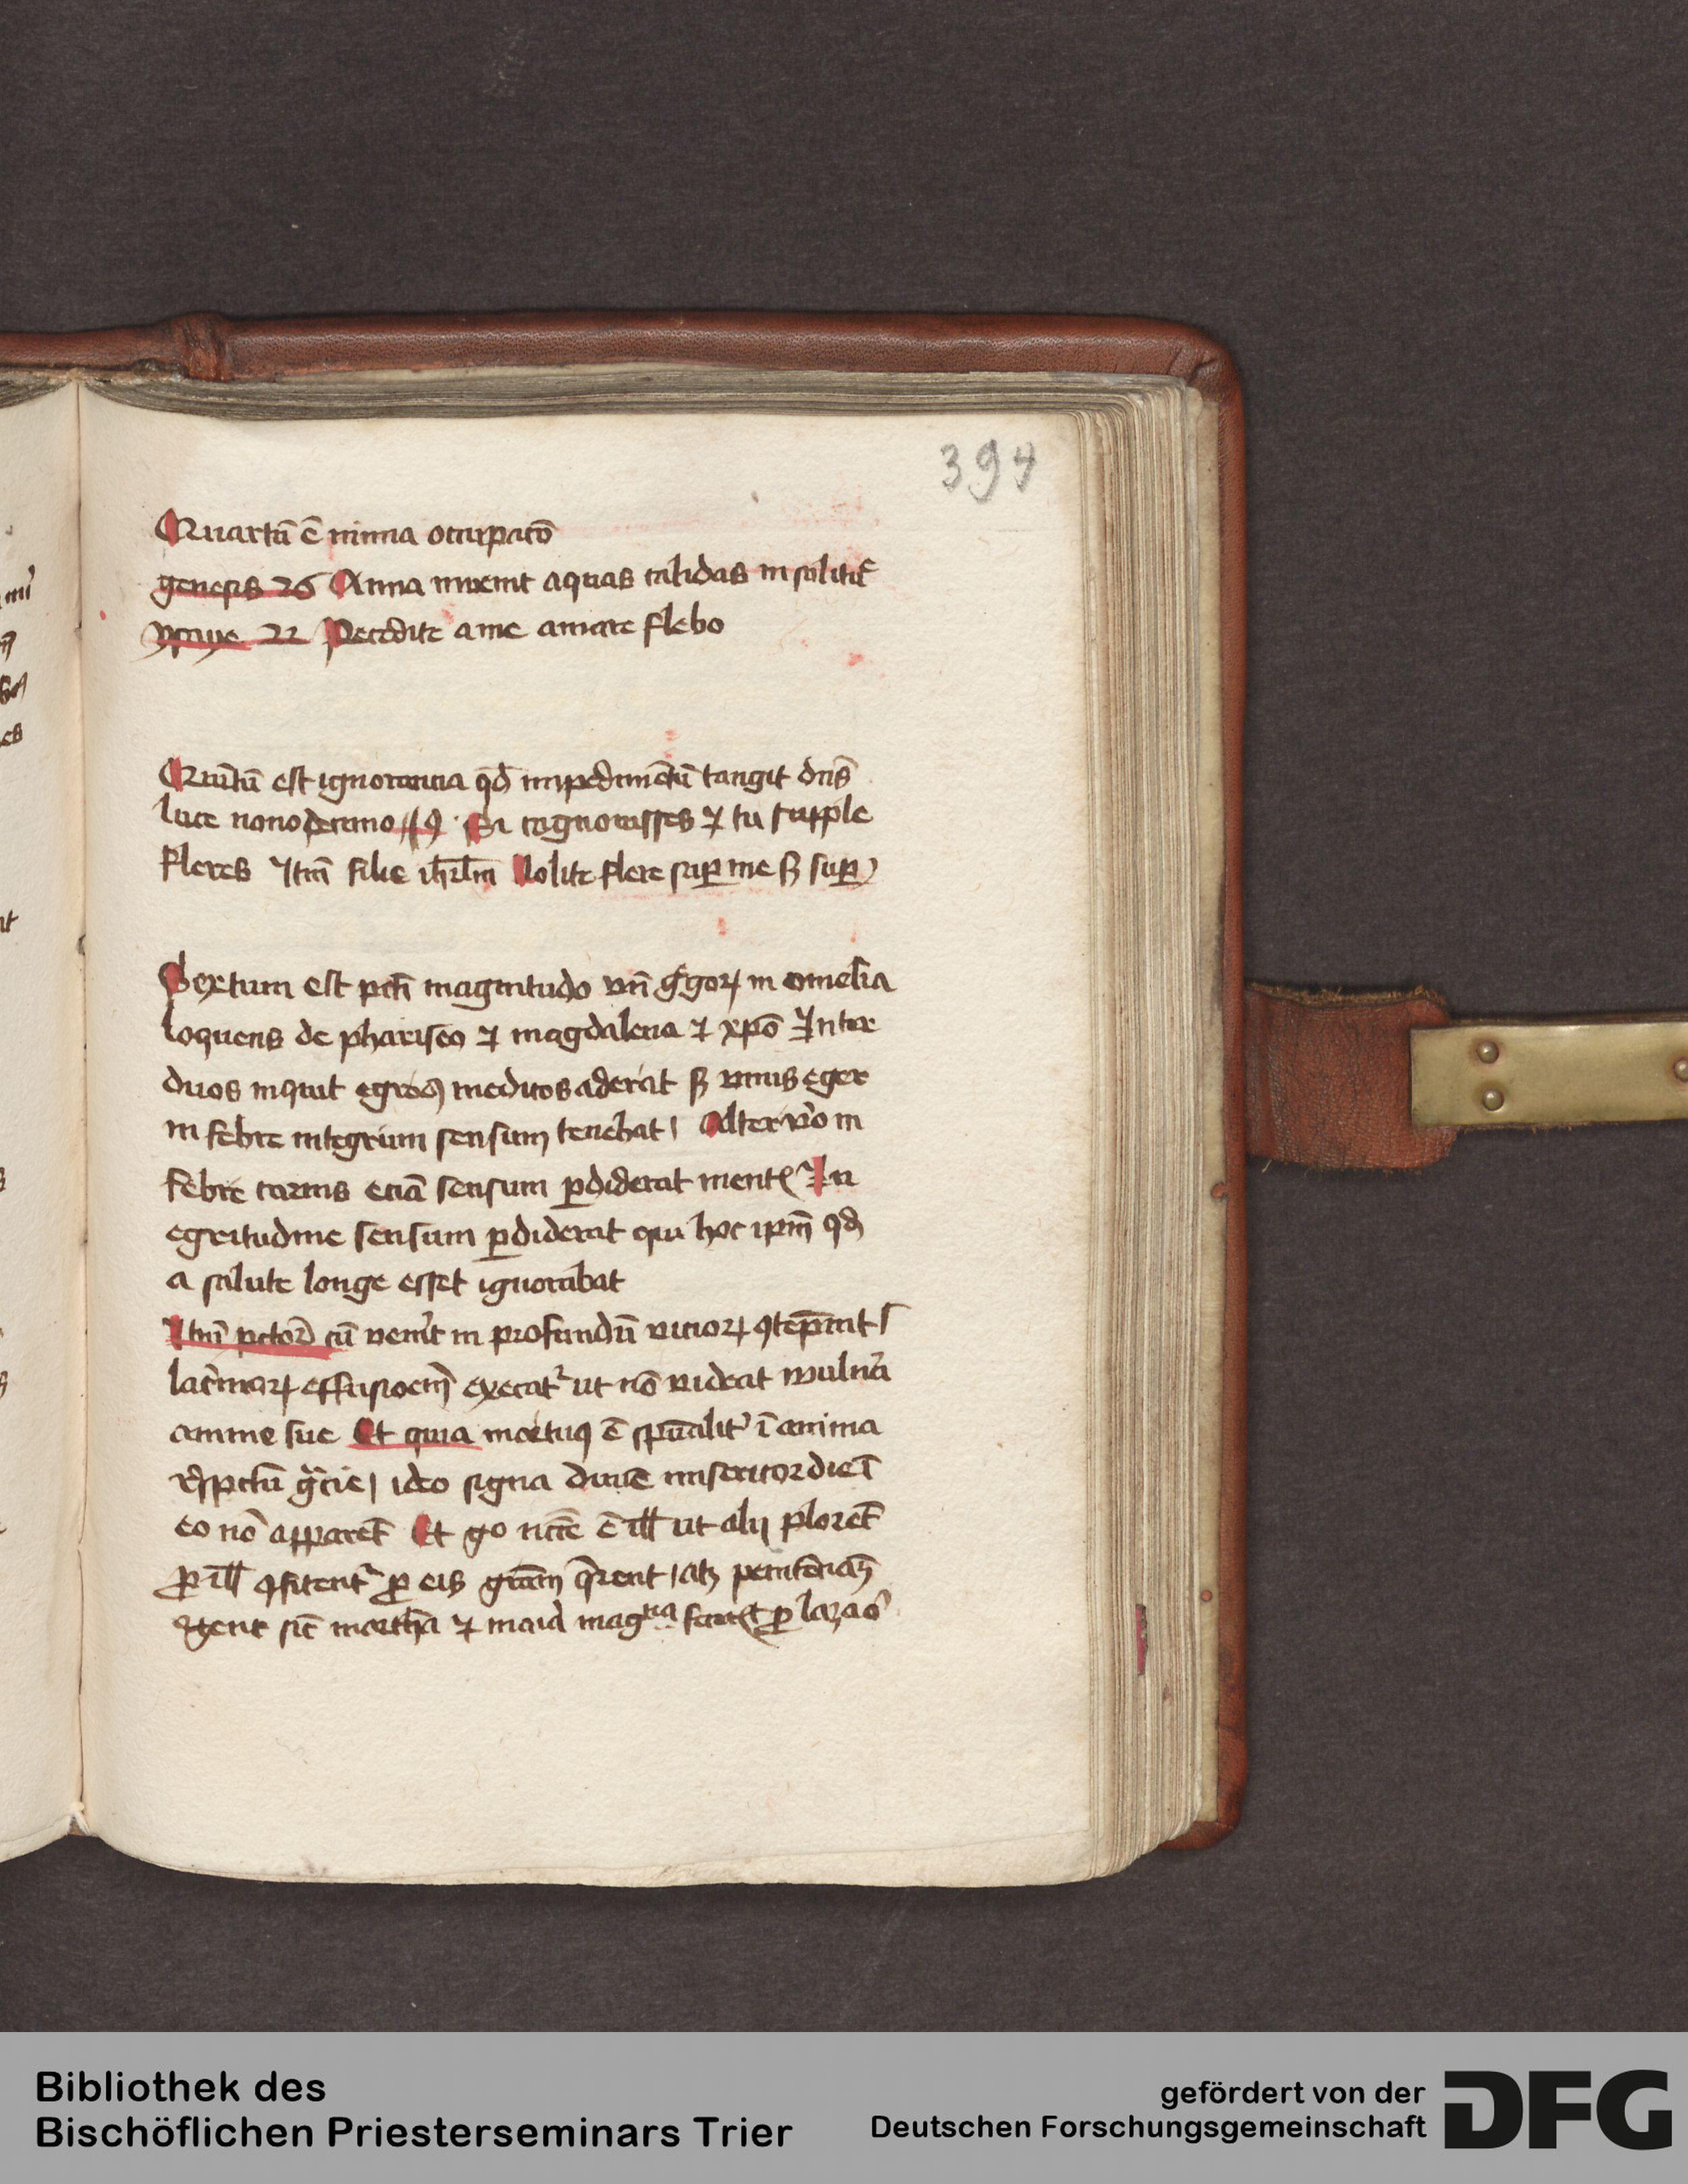 394
Quartū ē nimia occupacō
genesis 26 Anna inuenit aquas calidas in solitud
ysaye 22 Recedite a me amare flebo
Quītū est ignorancia qd̄ impedimētū tangit dn̄s
luce nonodecimo 19 Si cognouisses ⁊ tu supple
fleres Itm̄ filie ihrl̄m Nolite flere sup me sꝫ sup
Sextum est pcti magnitudo vn̄ g̊goꝝ in omelia
loquens de phariseo ⁊ magdalena ⁊ xp̄o Inter
duos inquit egros medicos aderat sꝫ unus eger
in febre integrum sensum tenebat / Alter v̊o in
febre carnis eciā sensum ꝑdiderat mentꝭ In
egritudine sensum ꝑdiderat qui hoc ipm̄ qd̄
a salute longe esset ignorabat
Itm̄ pctor cū venit in profundū vicioꝝ ꝯtēpnit /
lacrimaꝝ effusioem̄ execatͬ ut nō videat wulnͣa
anime sue Et quia mortuꝯ ē spūalitͬ ī anima
rͦspctū gͣcie / ideo signa diuīe misericordie ī
eo nō apparēt Et gͦo ncc̄e ē ill̄ ut alij plorēt
ꝓ ill̄ ꝯfitentͬ ꝓ eis grām q̄rent / atꝫ penitēciaꝫ
agent sic̄ martha ⁊ maria magna ꝓ lazaͦo
Bibliothek des
Bischöflichen Priesterseminars Trier
gefördert von der
Deutschen Forschungsgemeinschaft
DFG